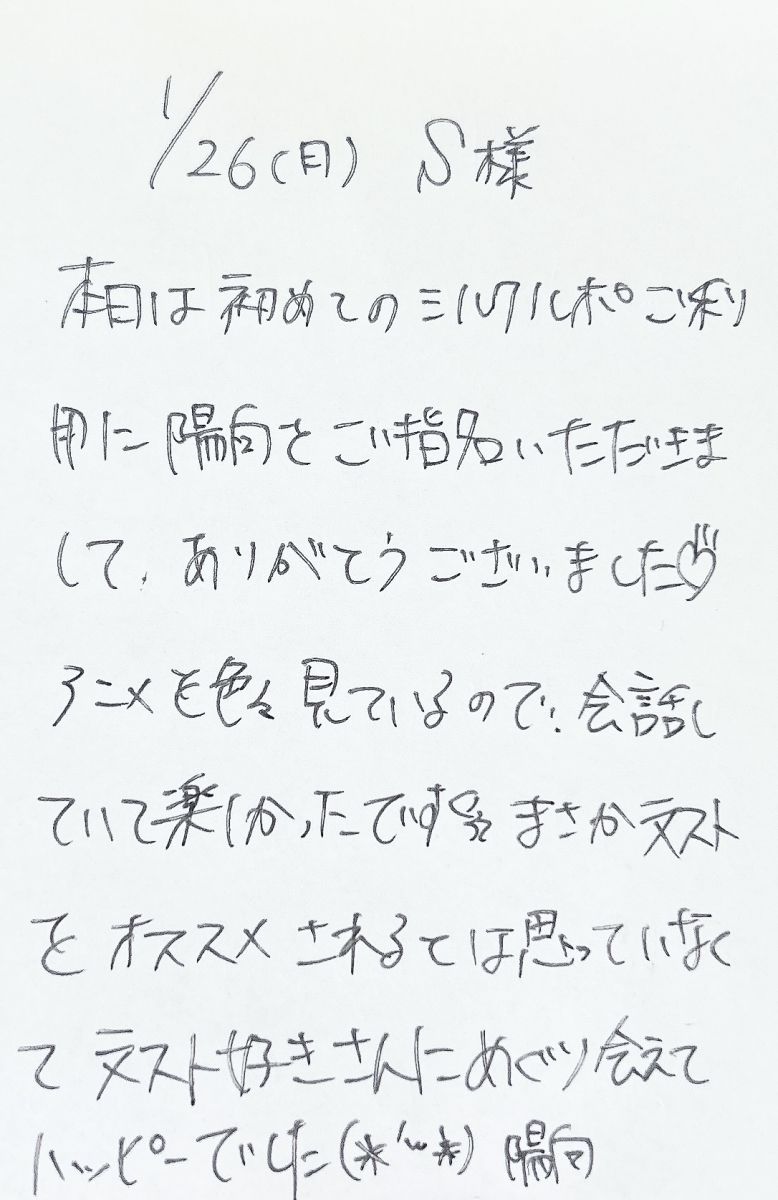 1/26(日) S様
本日は初めてのミルクルポご利
用に陽向をご指名いただきま
して、ありがとうございました♡
アニメを色々見ているので、会話し
ていて楽しかったです まさか文スト
をオススメされるとは思っていなく
て文スト好きさんにめぐり会えて
ハッピーでした(*'''*) 陽向